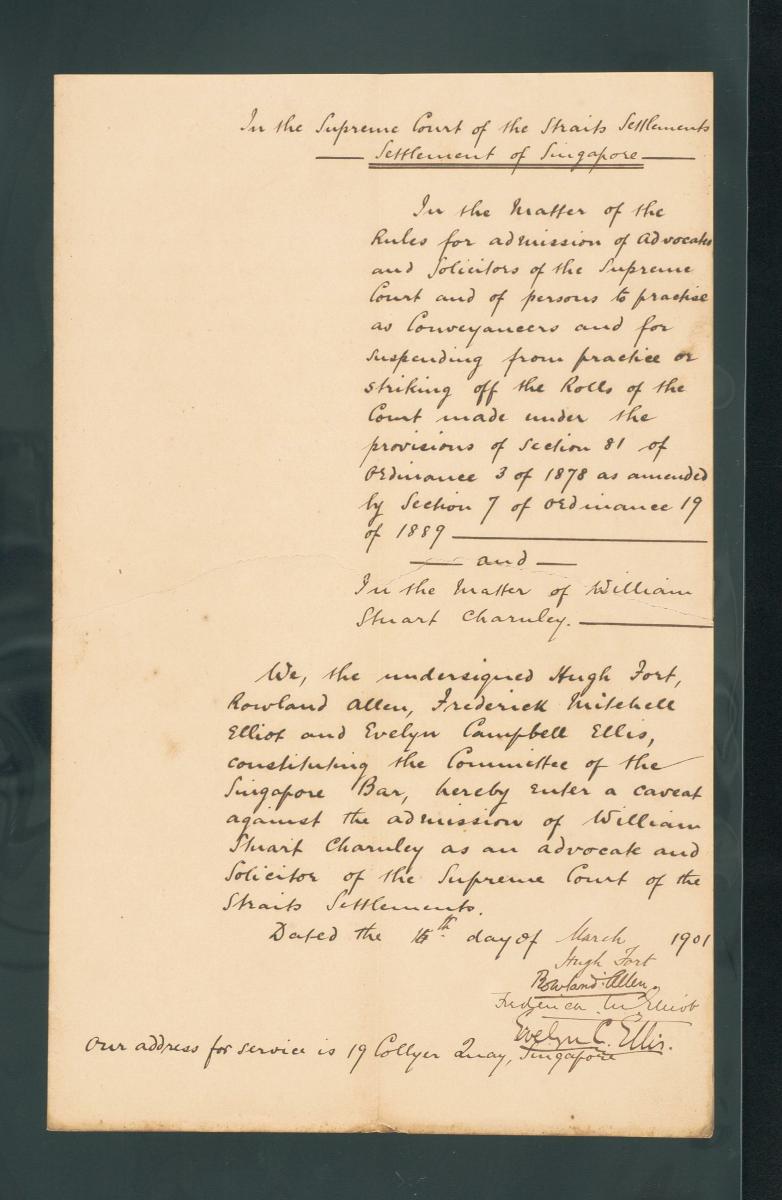 In the Supreme Court of the Straits Settlements
Settlement of Singapore
In the Matter of the
Rules for admission of Advocates
and Solicitors of the Supreme
Court and of persons to practise
as Conveyancers and for
suspending from practice or
striking off the Rolls of the
Court made under the
provisions of Section 81 of
Ordinance 3 of 1878 as amended
by Section 7 of Ordinance 19
of 1889
and
In the Matter of William
Stuart Charnley.
We, the undersigned Hugh Fort,
Rowland Allen, Frederick Mitchell
Elliot and Evelyn Campbell Ellis,
constituting the Committee of the
Singapore Bar, hereby enter a caveat
against the admission of William
Stuart Charnley as an advocate and
Solicitor of the Supreme Court of the
Straits Settlements.
Dated the day of March 1901
Hugh Fort
Rowland Allen
Frederick M. Elliot
Evelyn C. Ellis.
Our address for service is 19 Collyer Quay, Singapore